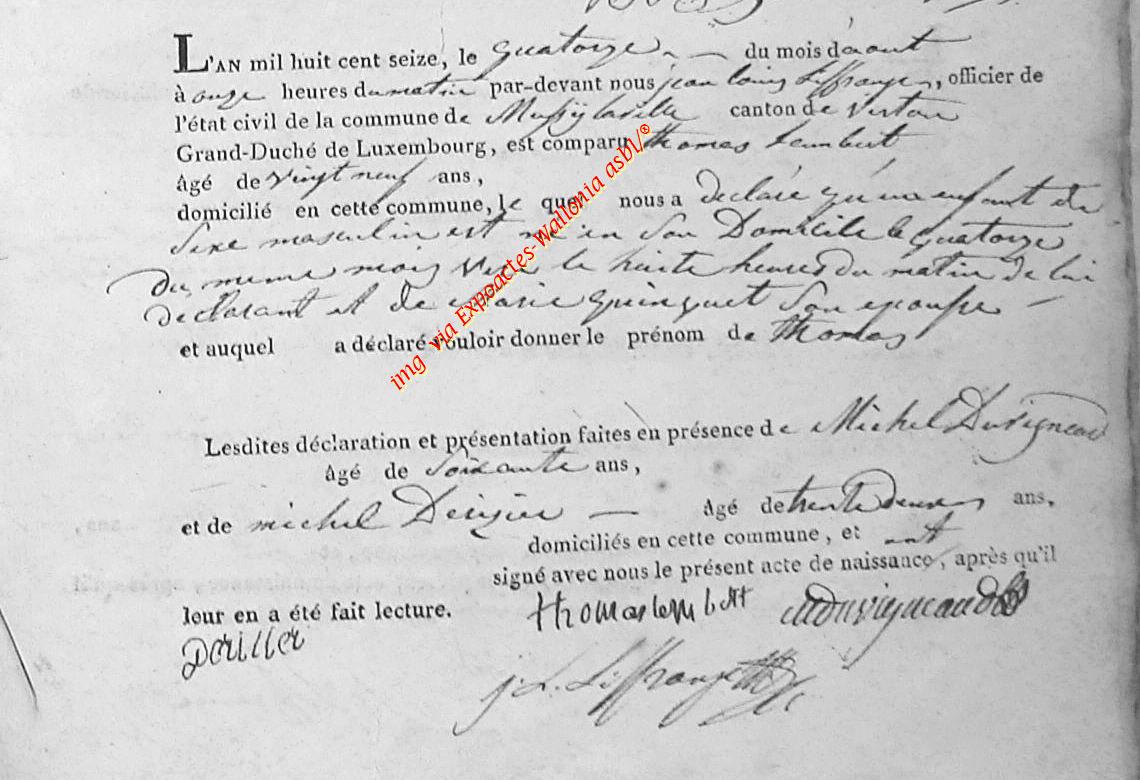 L'AN mil huit cent seize, le quatorze du mois daout
à onze heures dumatin par-devant nous jean louis Liffrange, officier de
l'état civil de la commune de Mussÿlaville canton de virton
Grand-Duché de Luxembourg, est comparu thomas Lembert
âgé de vingt neuf ans,
domicilié en cette commune, le quel nous a declaré qu'un enfant du
sexe masculin est né en son Domicile le quatorze
du même mois vers le huite heures du matin de lui
declarant et de marie quinquet son epouse
et auquel a déclaré vouloir donner le prénom de thomas
Lesdites déclaration et présentation faites en présence de Michel Duvigneau
âgé de soixante ans,
et de michel âgé de trente deux ans,
domiciliés en cette commune, et ont
signé avec nous le présent acte de naissance, après qu'il
leur en a été fait lecture. thomas lembert mduvigneaud
J. L. Liffrange
img via Expoactes-Wallonia asbl/®